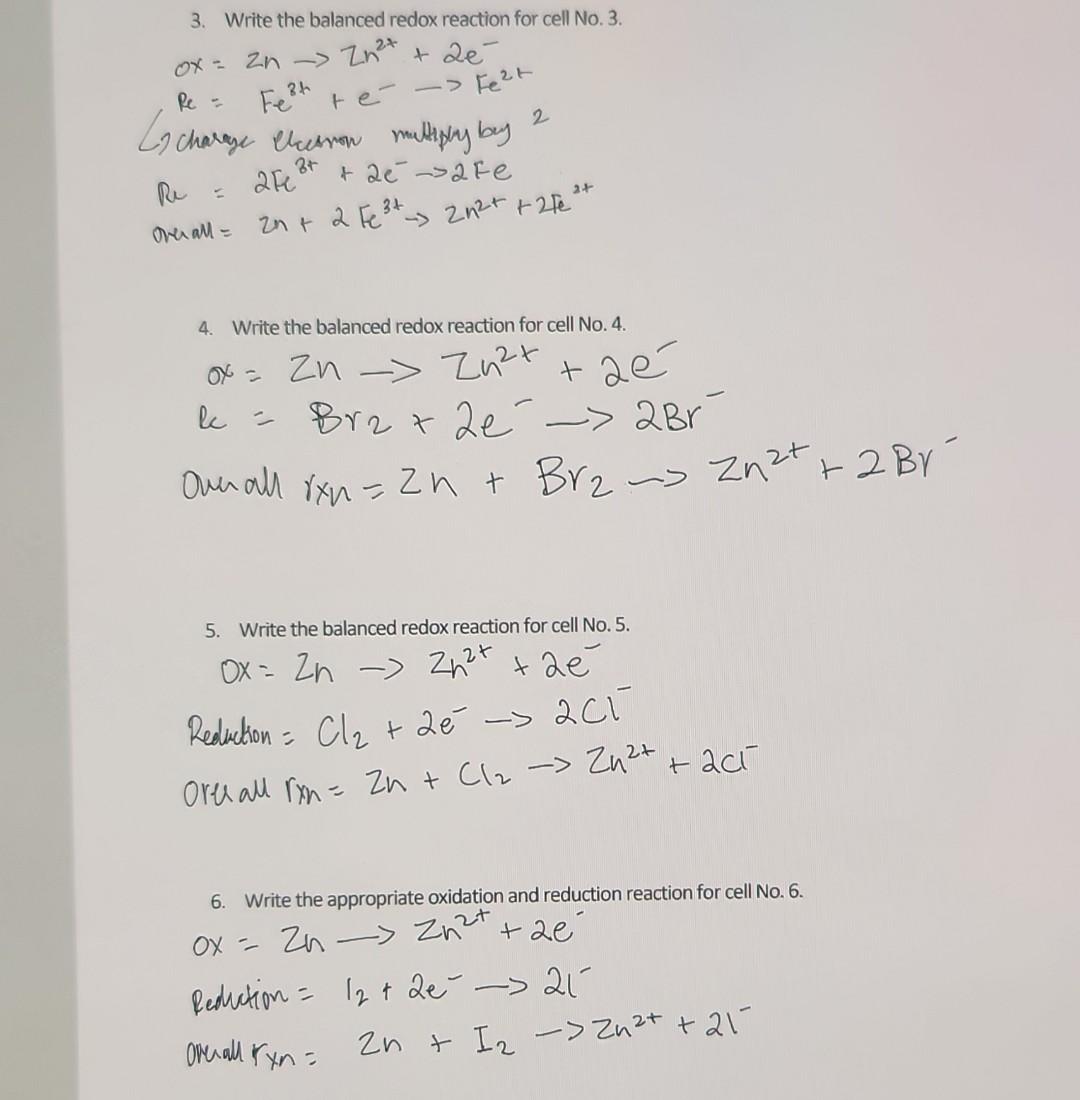 3. Write the balanced redox reaction for cell No. 3.
ox = Zn → Zn²⁺ + 2e⁻
Re = Fe³⁺ + e⁻ → Fe²⁺
↳ charge electron multiply by 2
Re = 2Fe³⁺ + 2e⁻ → 2Fe
overall = Zn + 2Fe³⁺ → Zn²⁺ + 2Fe²⁺
4. Write the balanced redox reaction for cell No. 4.
ox = Zn → Zn²⁺ + 2e⁻
Re = Br₂ + 2e⁻ → 2Br⁻
Overall rxn = Zn + Br₂ → Zn²⁺ + 2Br⁻
5. Write the balanced redox reaction for cell No. 5.
OX = Zn → Zn²⁺ + 2e⁻
Reduction = Cl₂ + 2e⁻ → 2Cl⁻
Overall rxn = Zn + Cl₂ → Zn²⁺ + 2Cl⁻
6. Write the appropriate oxidation and reduction reaction for cell No. 6.
OX = Zn → Zn²⁺ + 2e⁻
Reduction = I₂ + 2e⁻ → 2I⁻
Overall rxn = Zn + I₂ → Zn²⁺ + 2I⁻